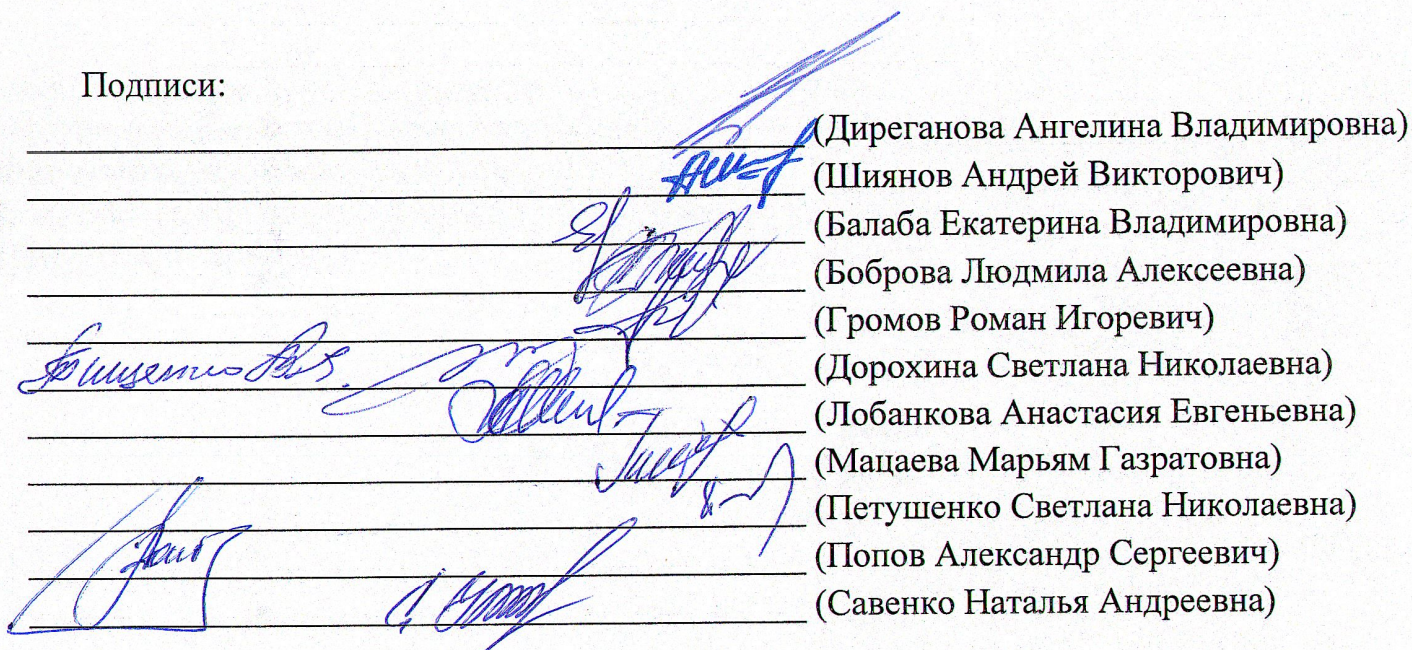 Подписи:
(Диреганова Ангелина Владимировна)
(Шиянов Андрей Викторович)
(Балаба Екатерина Владимировна)
(Боброва Людмила Алексеевна)
(Громов Роман Игоревич)
(Дорохина Светлана Николаевна)
(Лобанкова Анастасия Евгеньевна)
(Мацаева Марьям Газратовна)
(Петушенко Светлана Николаевна)
(Попов Александр Сергеевич)
(Савенко Наталья Андреевна)